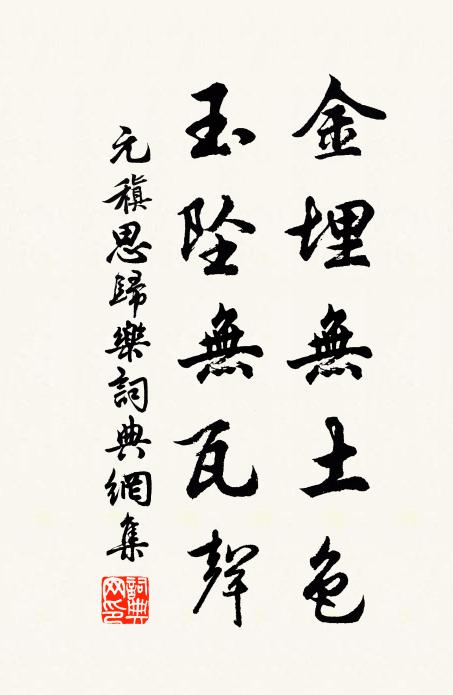 金埋無土色
玉坠無瓦聲
元稹思歸樂詞典網集
詞典网印